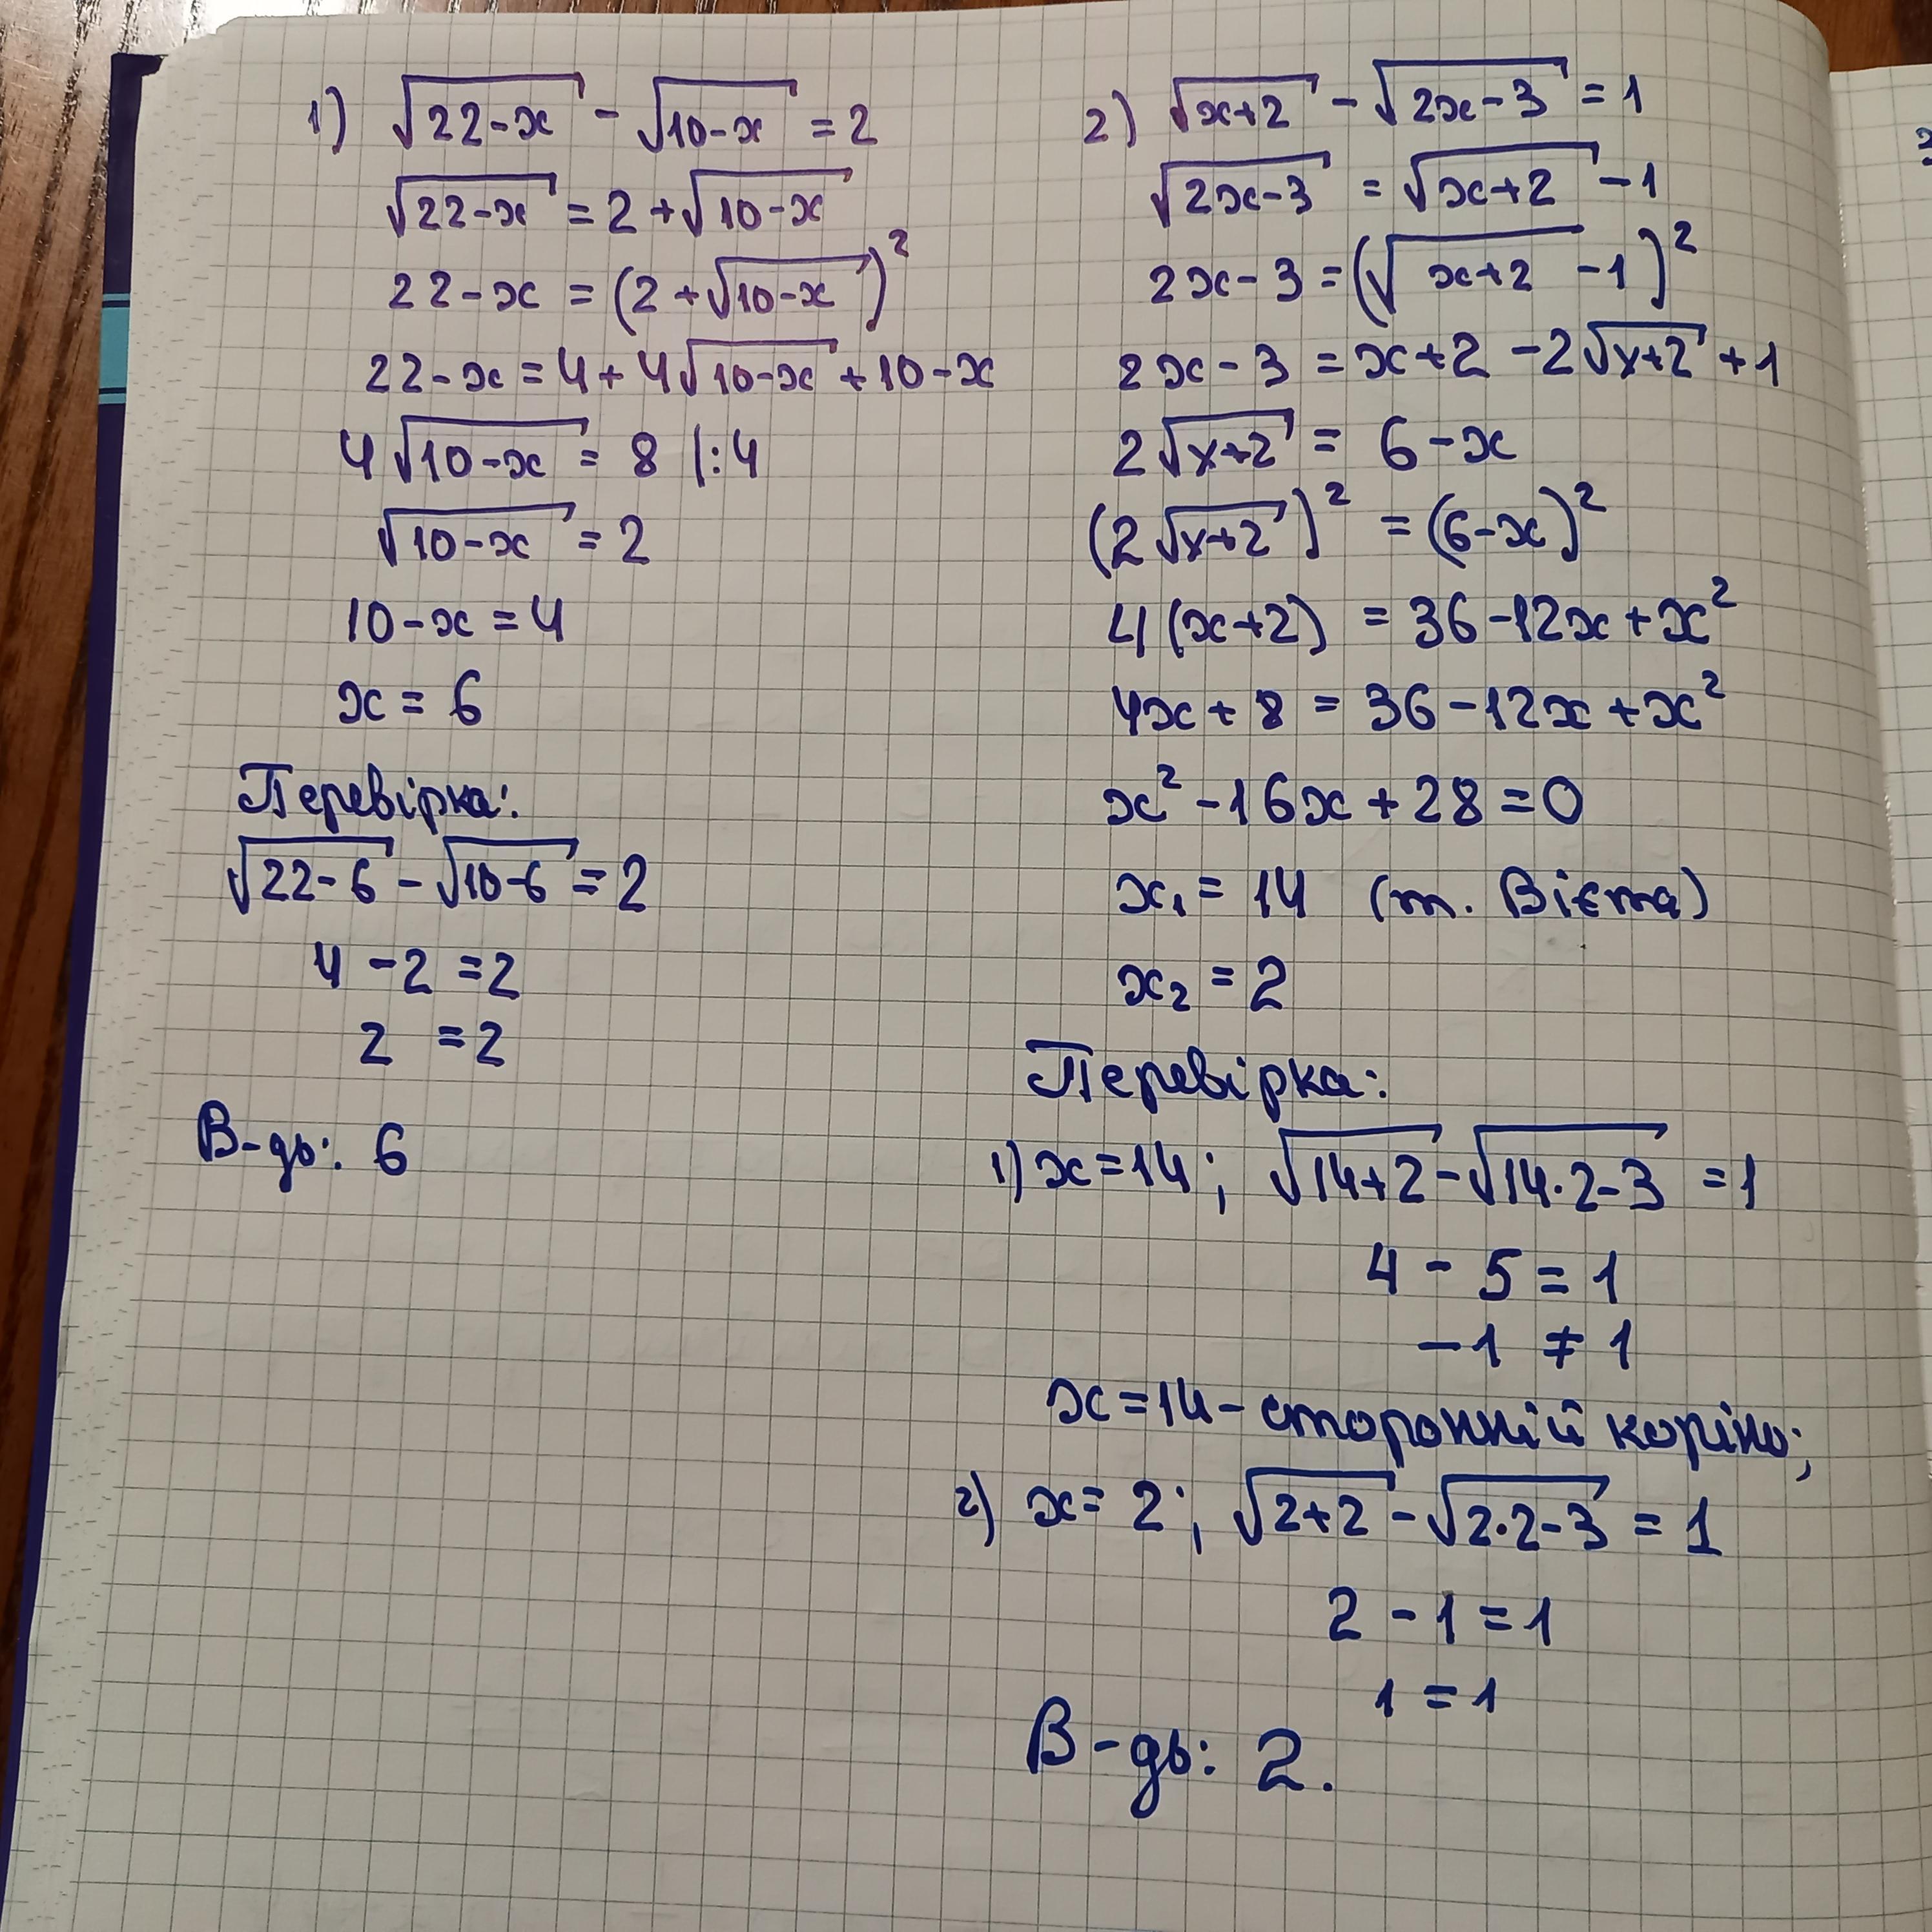 1) √(22-x) - √(10-x) = 2
√(22-x) = 2 + √(10-x)
22-x = (2 + √(10-x))²
22-x = 4 + 4√(10-x) + 10-x
4√(10-x) = 8 |:4
√(10-x) = 2
10-x = 4
x = 6
Перевірка:
√(22-6) - √(10-6) = 2
4 - 2 = 2
2 = 2
В-дь: 6
2) √(x+2) - √(2x-3) = 1
√(2x-3) = √(x+2) - 1
2x-3 = (√(x+2) - 1)²
2x-3 = x+2 - 2√(x+2) + 1
2√(x+2) = 6-x
(2√(x+2))² = (6-x)²
4(x+2) = 36-12x+x²
4x+8 = 36-12x+x²
x²-16x+28=0
x₁ = 14 (т. Вієта)
x₂ = 2
Перевірка:
1) x=14; √(14+2) - √(14·2-3) = 1
4 - 5 = 1
-1 ≠ 1
x=14 - сторонній корінь;
2) x=2; √(2+2) - √(2·2-3) = 1
2 - 1 = 1
1 = 1
В-дь: 2.